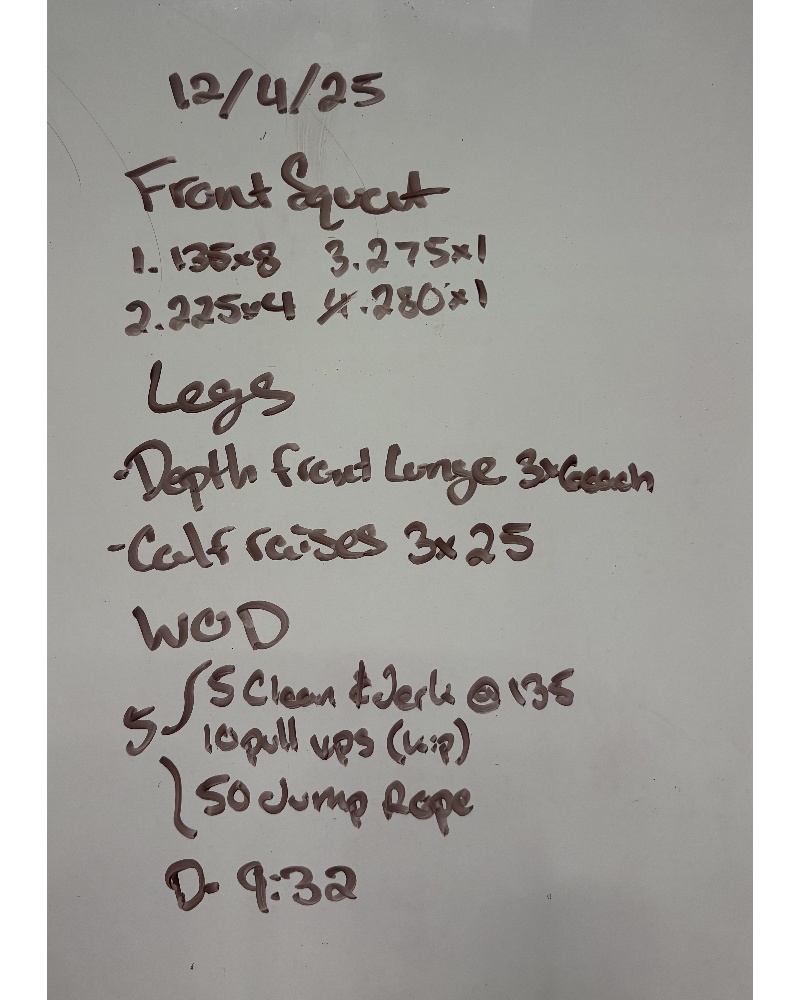 12/4/25
Front Squat
1. 135x8 3. 275x1
2. 225x4 4. 280x1
Legs
-Depth front lunge 3x6each
-Calf raises 3x25
WOD
5 Clean & Jerk @ 135
5 10 pull ups (kip)
50 Jump Rope
D- 9:32